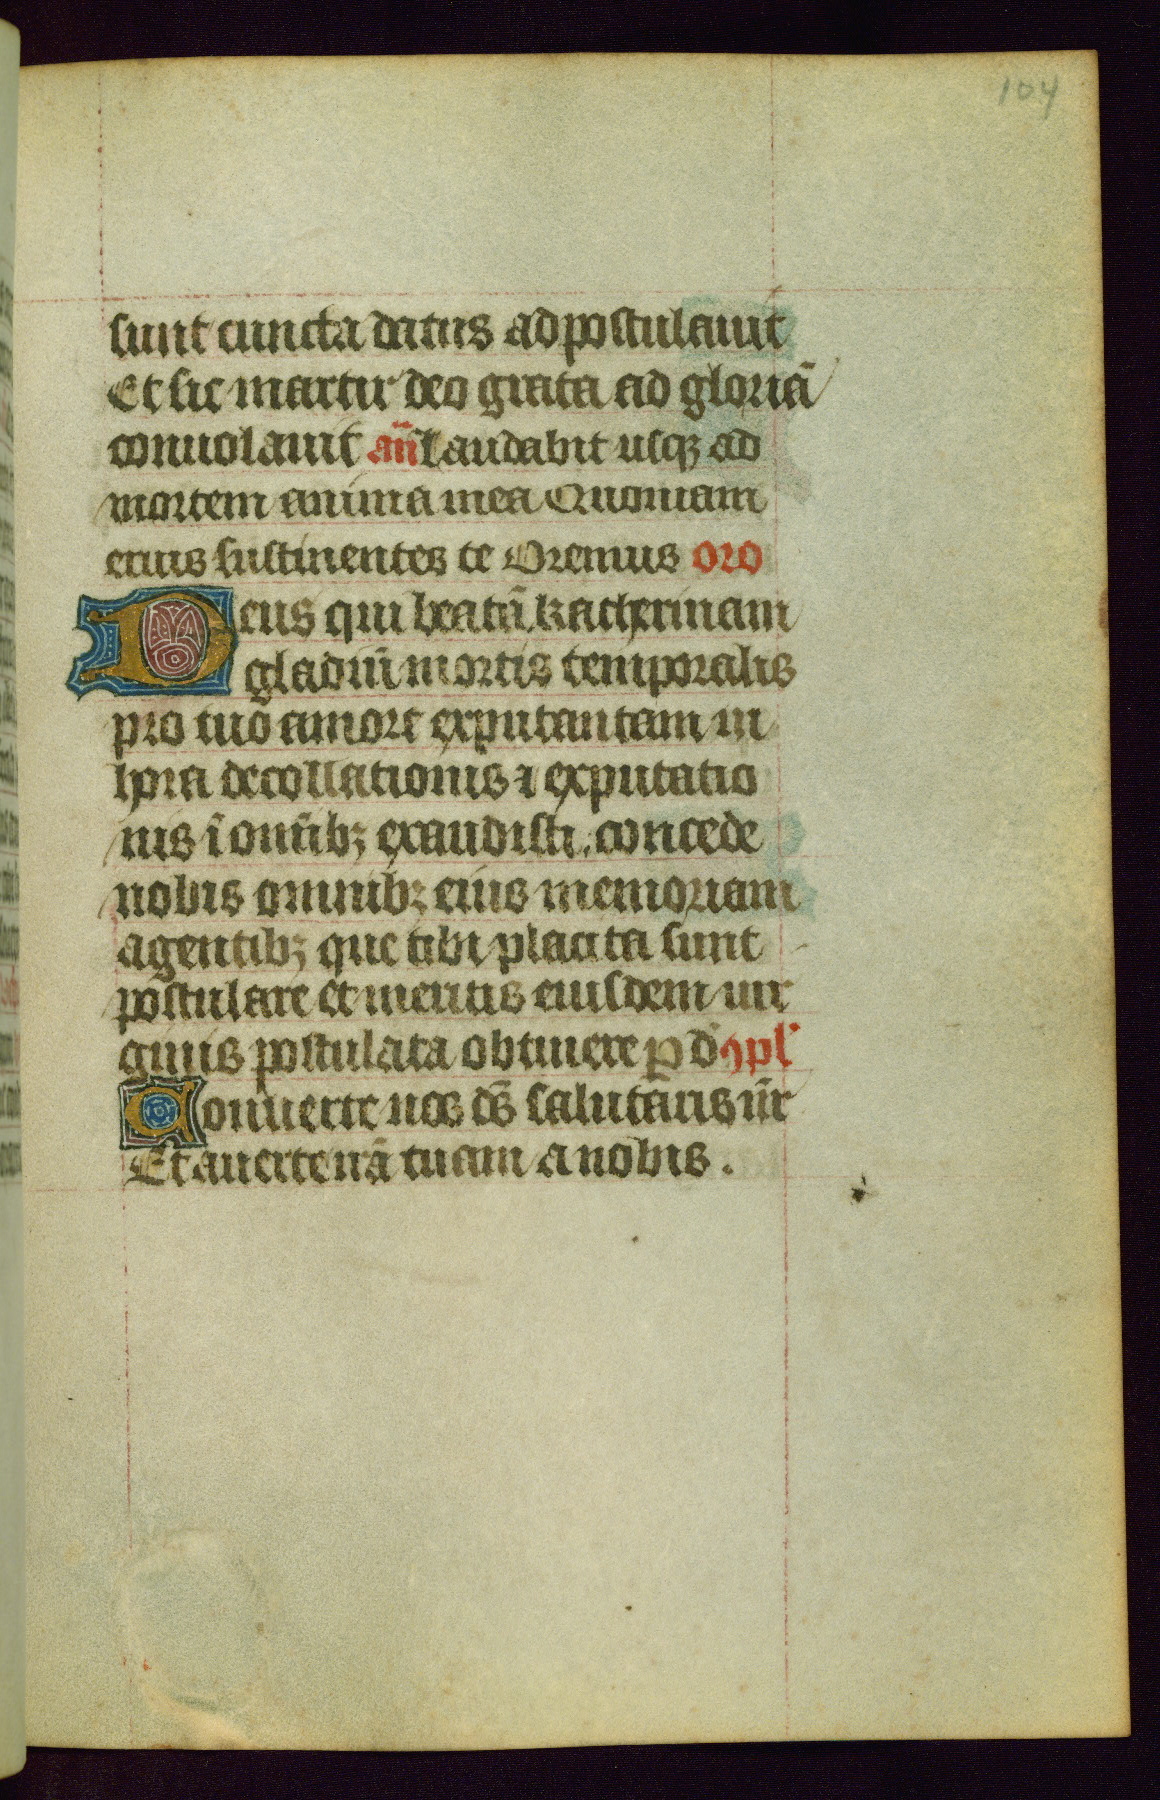 104
sunt cuncta datus adpostulauit
Et sic martir deo grata ad gloriā
conuolauit an̄ Laudabit usqꝫ ad
mortem anima mea Quoniam
eruis sustinentes te Oremus oro
Deus qui beatā katherinam
gladiū mortis temporalis
pro tuo amore exputantam in
hora decollationis ⁊ exputatio
nis ī om̄ibꝫ exaudisti . concede
nobis omnibꝫ eius memoriam
agentibꝫ que tibi placita sunt
postulare et meritis eiusdem uir
ginis postulata obtinere ꝑ d̄ ꝯpl'
Conuerte nos ds̄ salutaris nr̄
Et auerte irā tuam a nobis .